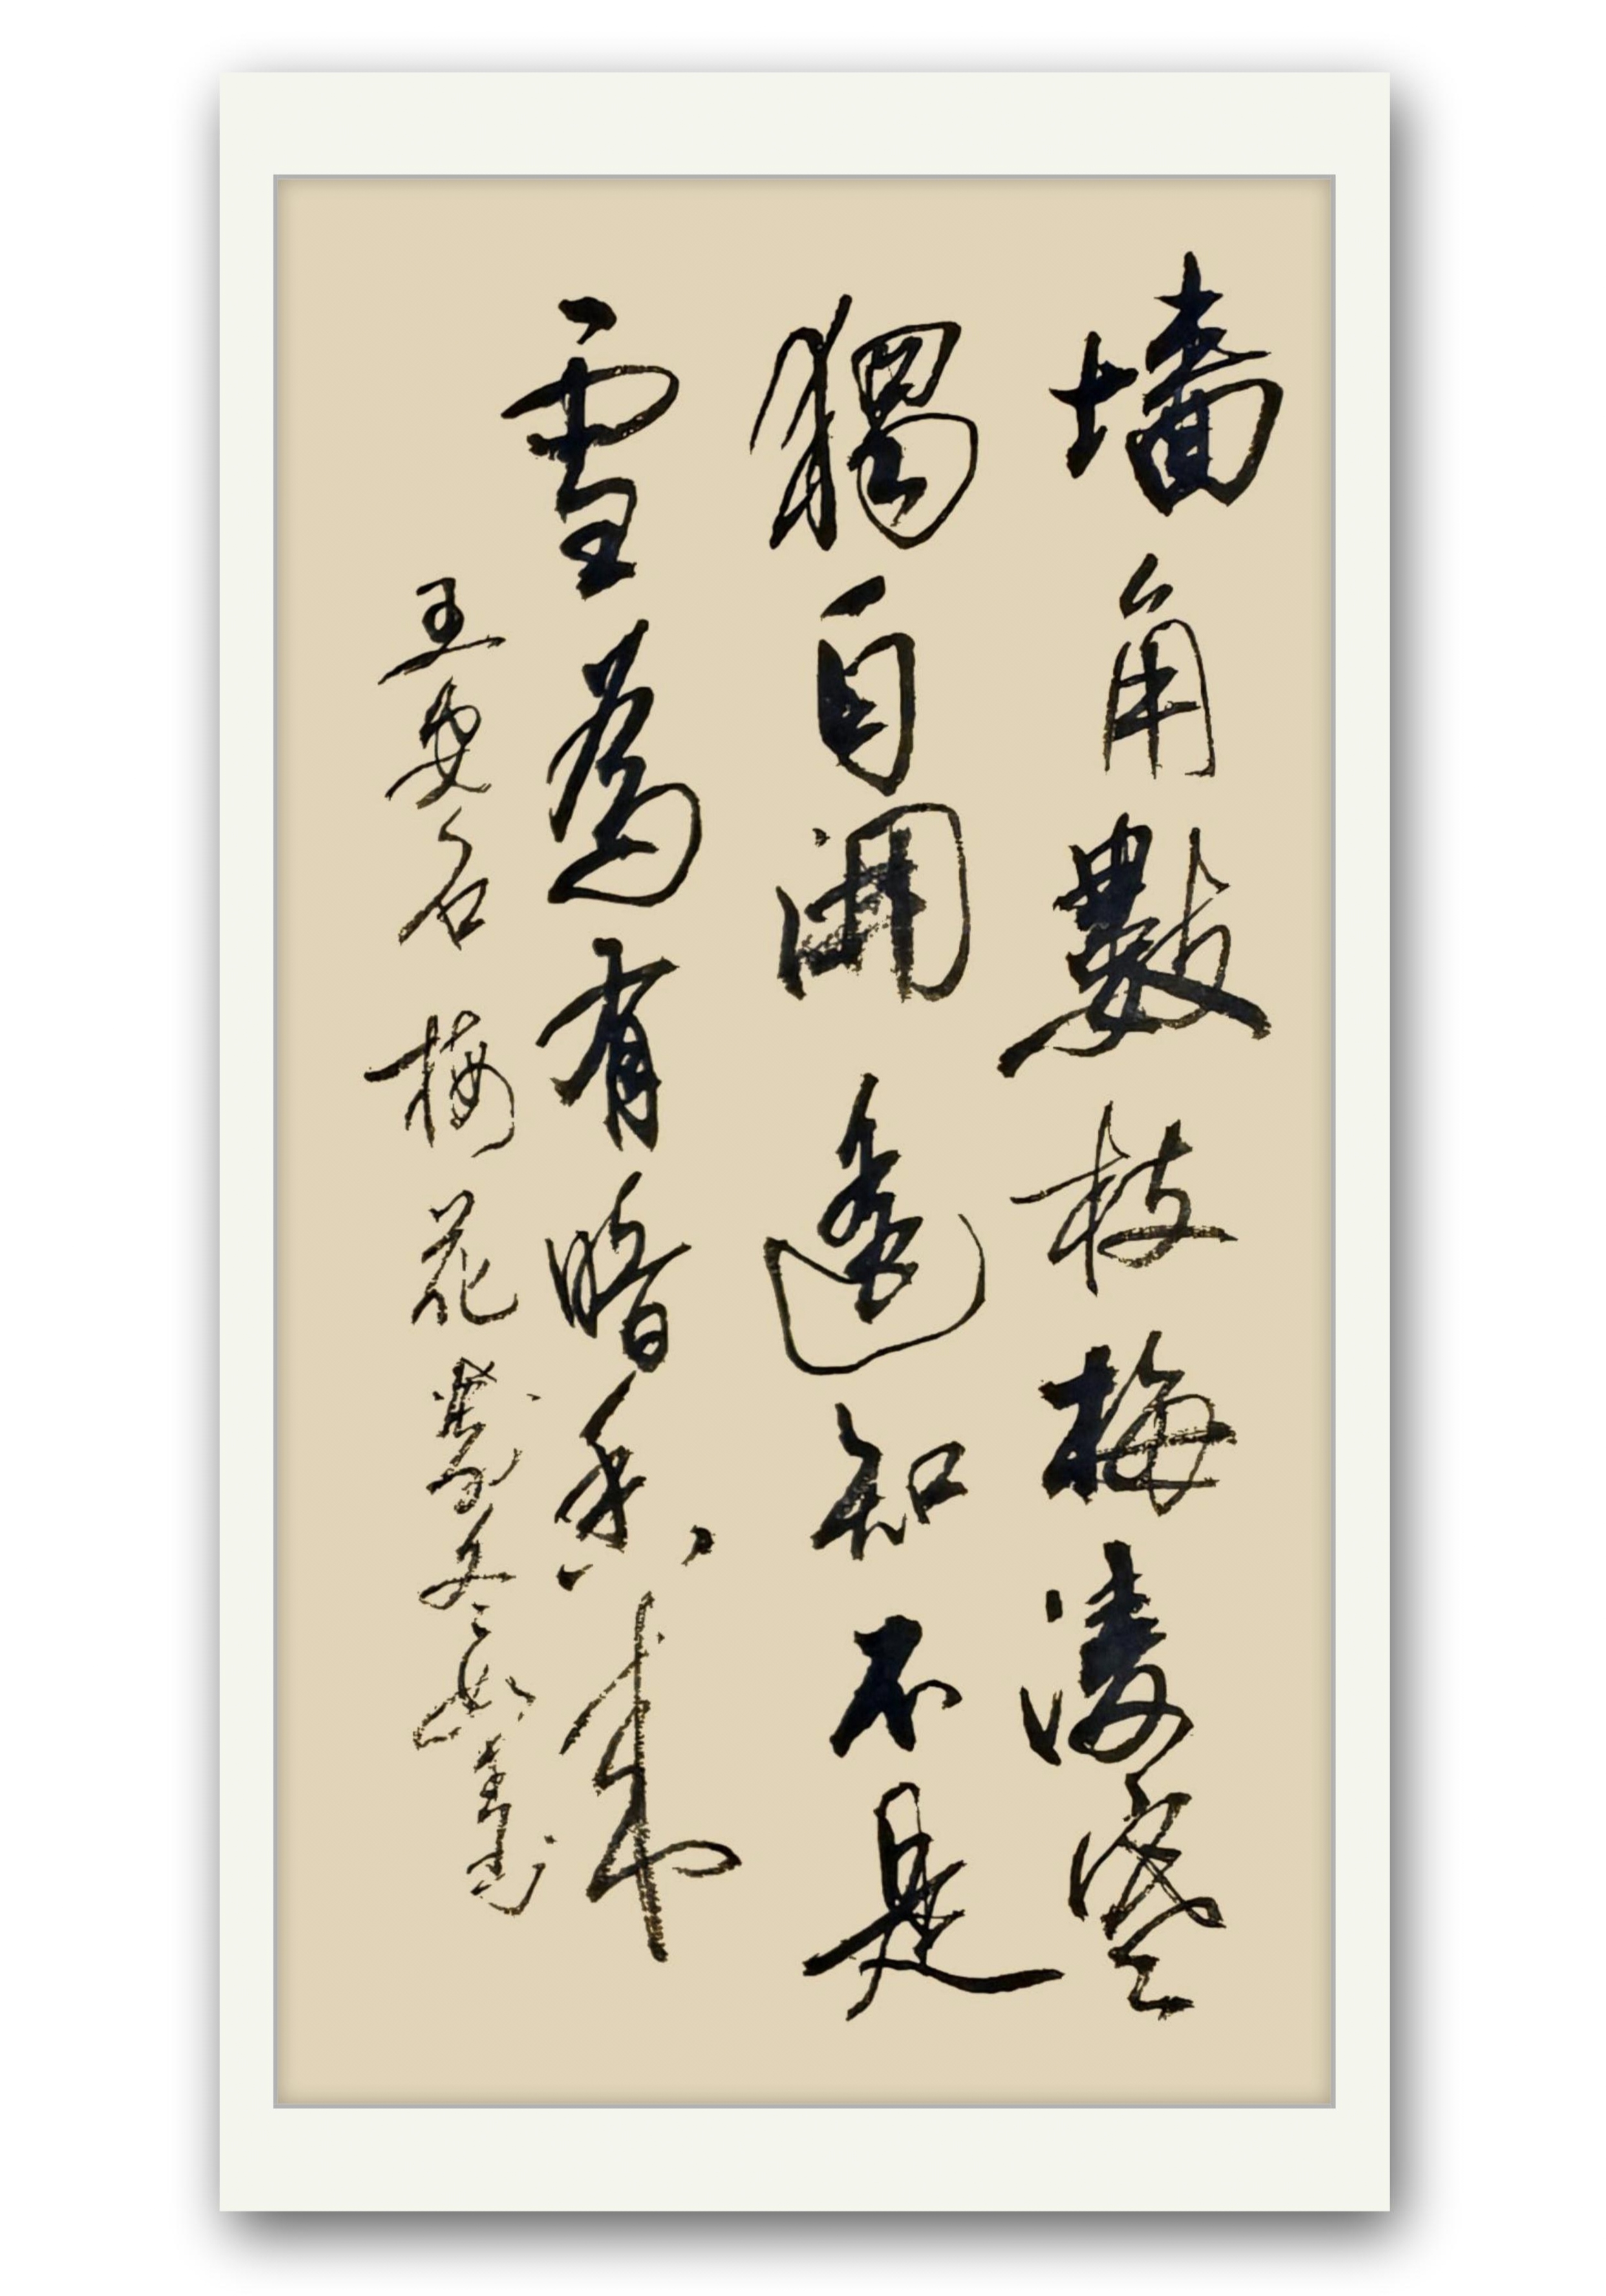 墙角數枝梅凌寒
獨自開遥知不是
雪為有暗香来
王安石梅花